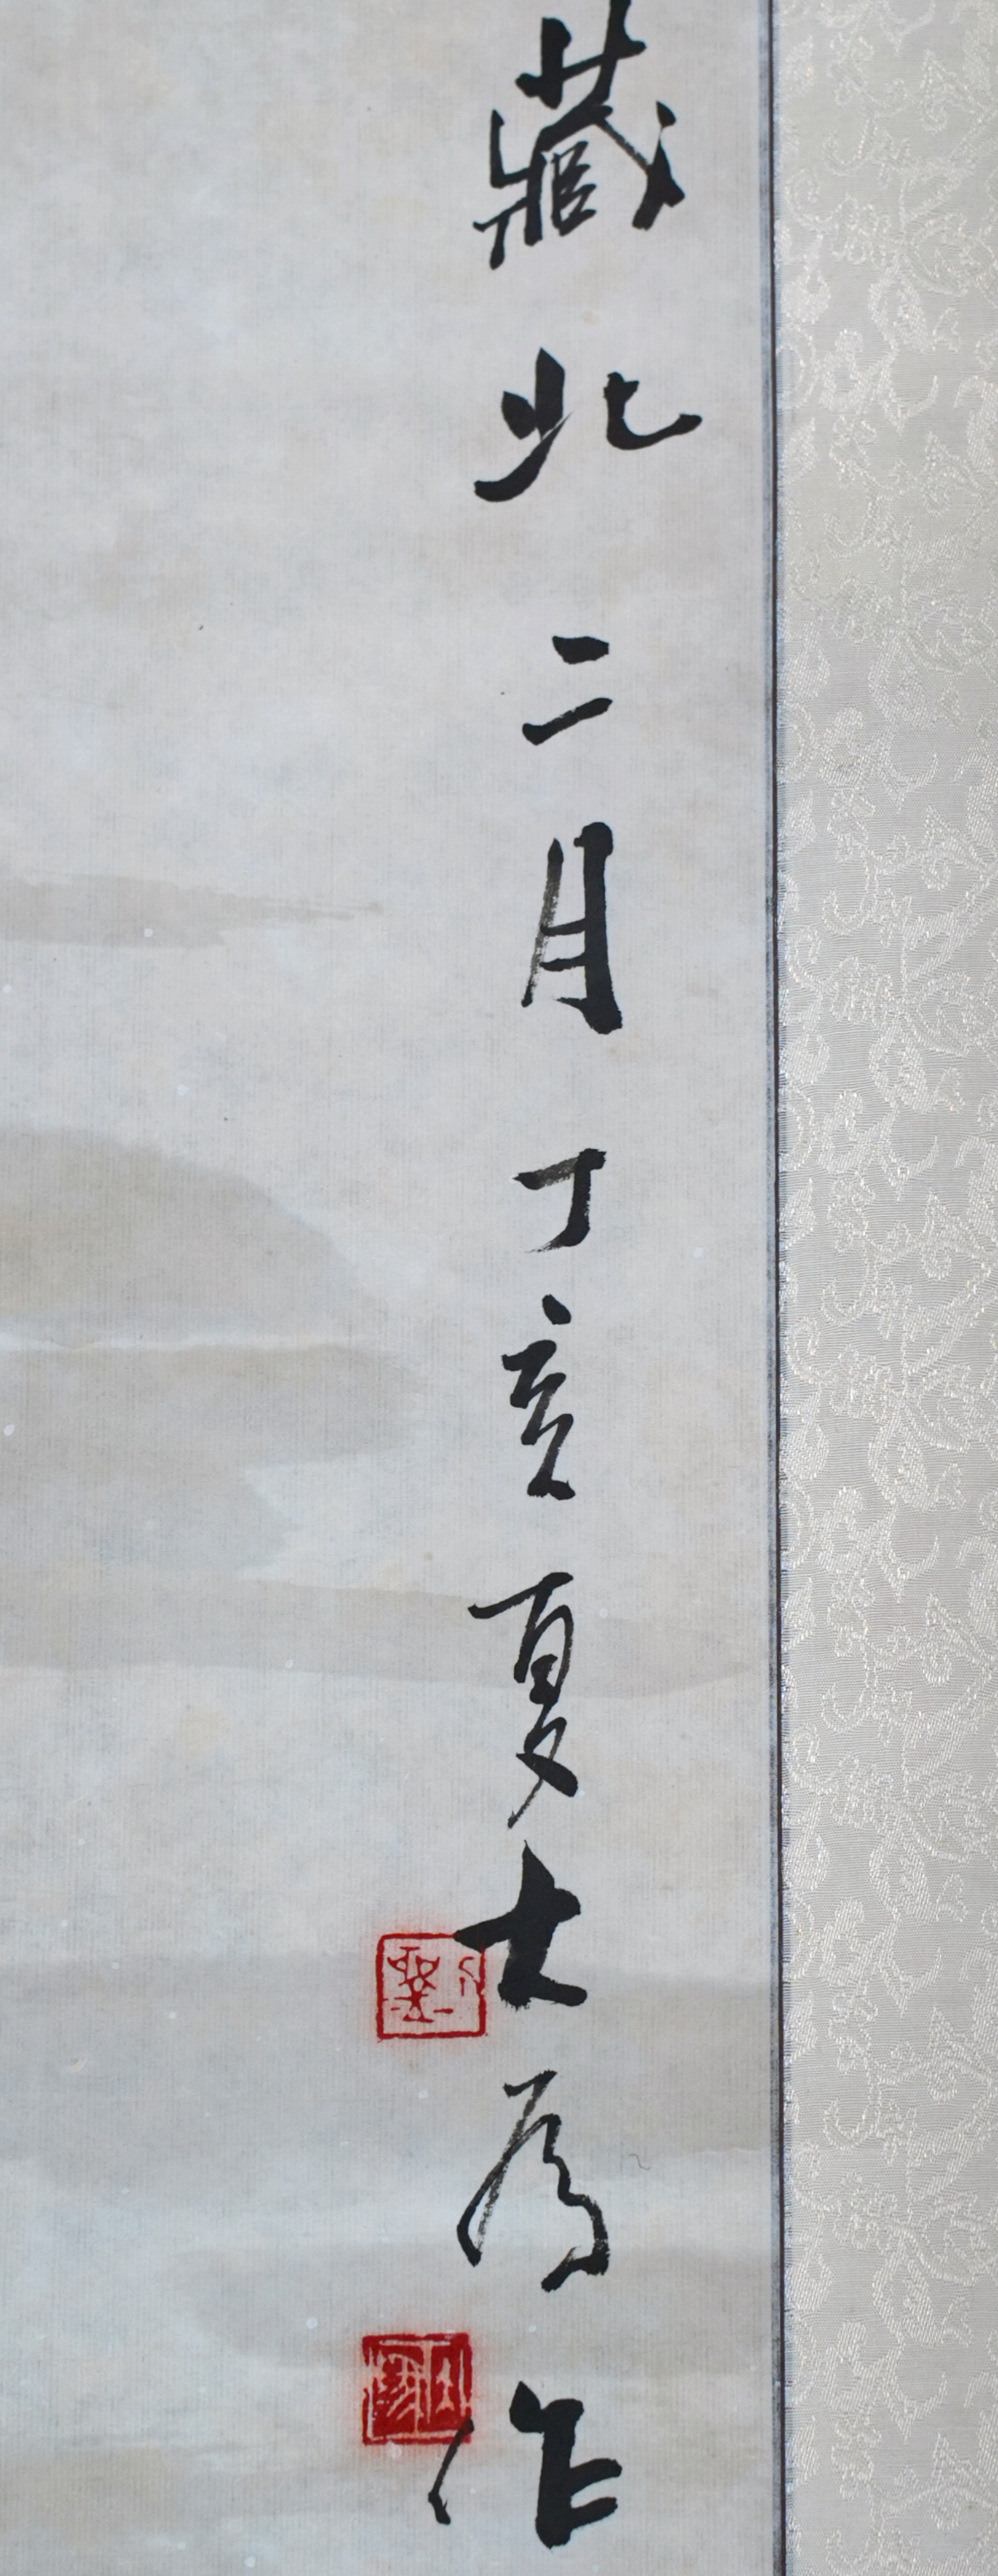 藏北二月丁亥夏大为作